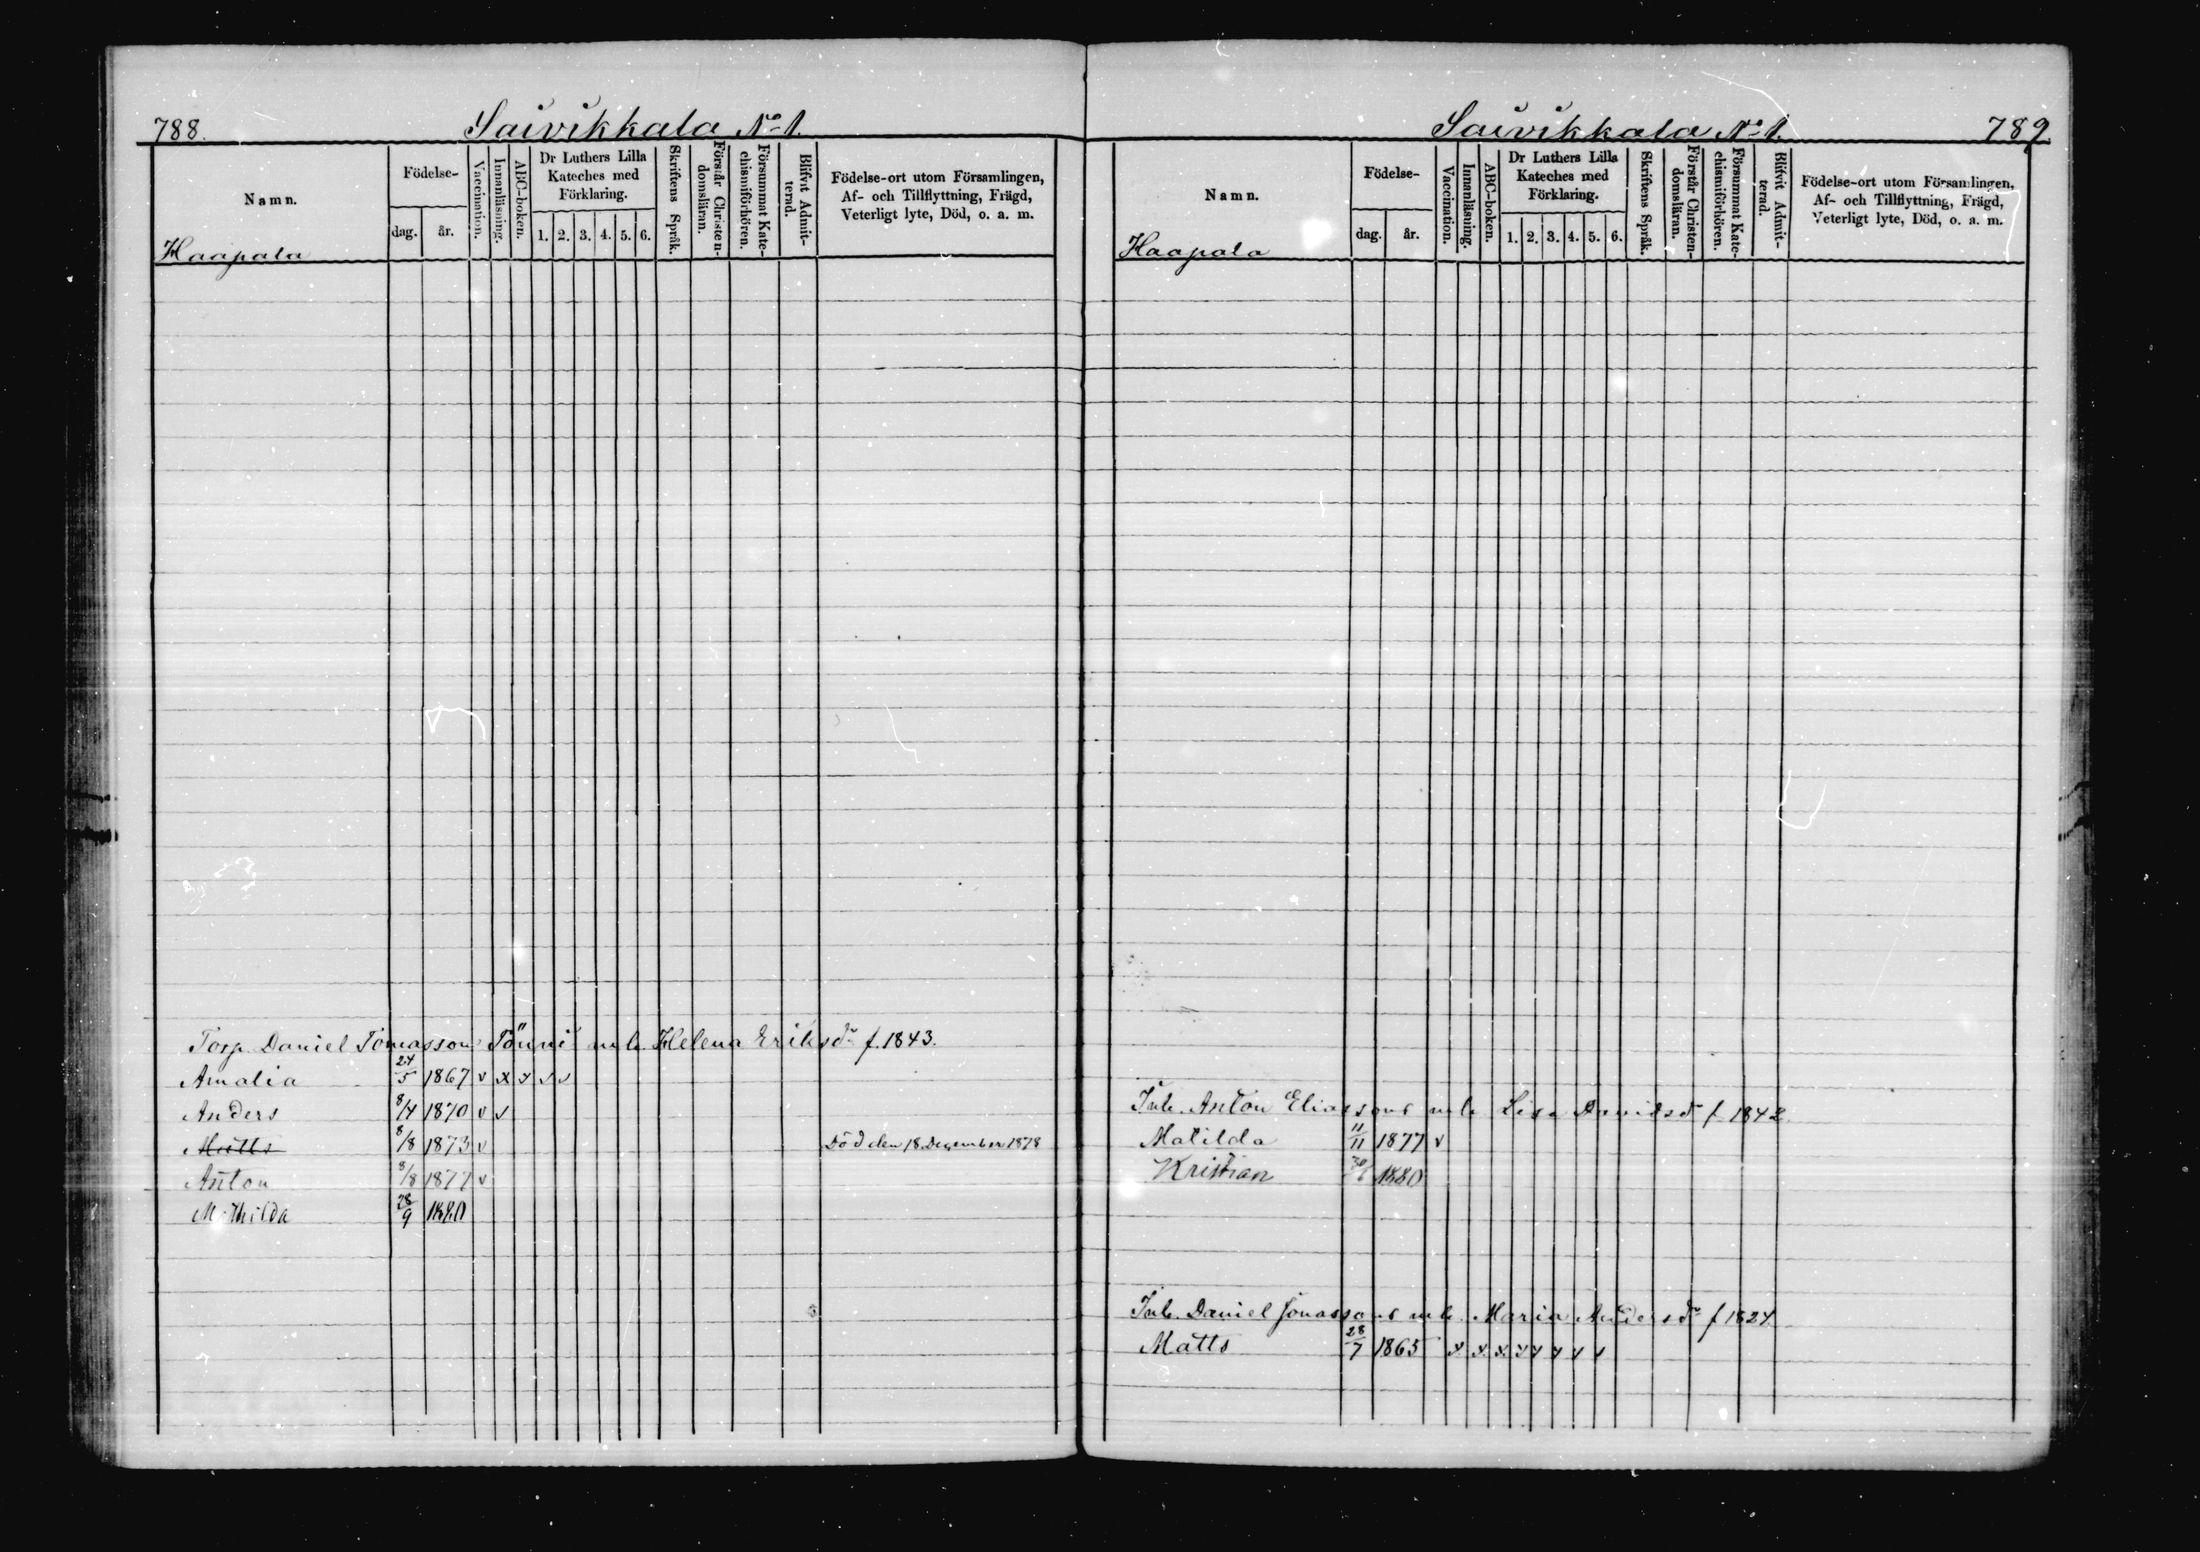 788.
Saivikkala No 1.
Namn.
Födelse-
dag.
år.
Vaccination.
Innanläsning.
ABC-boken.
Dr Luthers Lilla
Kateches med
Förklaring.
1. 2. 3. 4. 5. 6.
Skriftens Språk.
Förstår Christen-
domsläran.
Försummat Kate-
chismiförhören.
Blifvit Admit-
terad.
Födelse-ort utom Församlingen,
Af- och Tillflyttning, Frägd,
Veterligt lyte, Död, o. a. m.
Haapala
Torp. Daniel Tomasson Tönni mh. Helena Eriksdr f. 1843.
Amalia 24/5 1867 v x v v v
Anders 8/4 1870 v v
Matts 8/8 1873 v Död den 18 December 1878
Anton 8/8 1877 v
Mathilda 28/9 1880
Saivikkala No 1.
789
Namn.
Födelse-
dag.
år.
Vaccination.
Innanläsning.
ABC-boken.
Dr Luthers Lilla
Kateches med
Förklaring.
1. 2. 3. 4. 5. 6.
Skriftens Språk.
Förstår Christen-
domsläran.
Försummat Kate-
chismiförhören.
Blifvit Admit-
terad.
Födelse-ort utom Församlingen,
Af- och Tillflyttning, Frägd,
Veterligt lyte, Död, o. a. m.
Haapala
Inh. Anton Eliassons mh Lisa Davidsdr f. 1842
Matilda 11/11 1877 v
Kristian 30/6 1880
Inh. Daniel Jonassons mh. Maria Andersdr f 1824
Matts 28/7 1865 x x x v v v v v